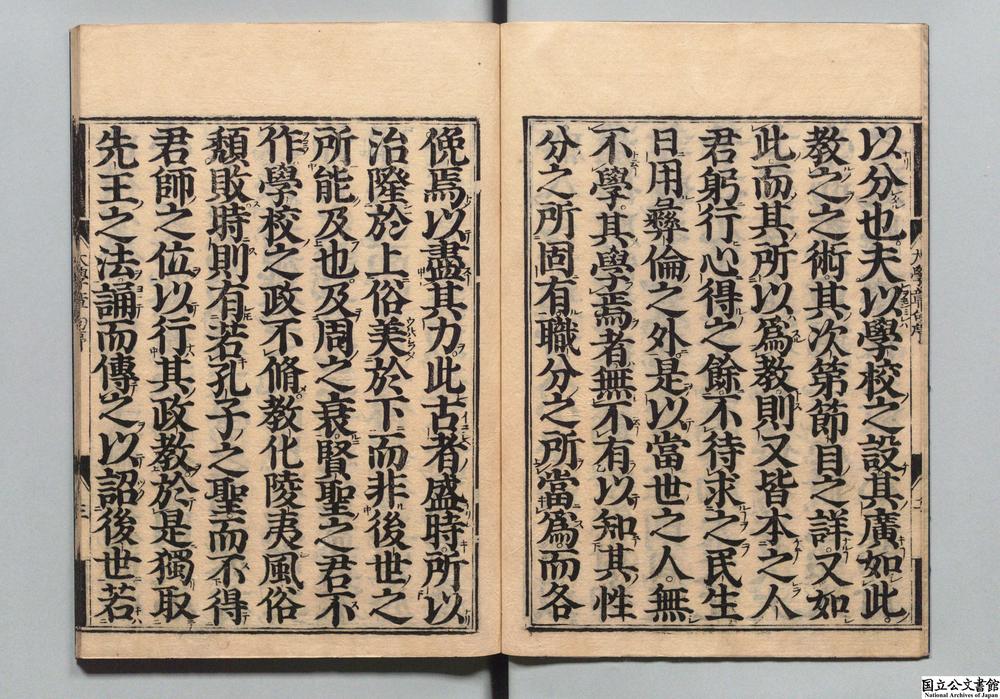 以分也夫以學校之設其廣如此
教之之術其次第節目之詳又如
此而其所以爲教則又皆本之人
君躬行心得之餘不待求之民生
日用彝倫之外是以當世之人無
不學其學焉者無不有以知其性
分之所固有職分之所當爲而各
俛焉以盡其力此古者盛時所以
治隆於上俗美於下而非後世之
所能及也及周之衰賢聖之君不
作學校之政不脩教化陵夷風俗
頽敗時則有若孔子之聖而不得
君師之位以行其政教於是獨取
先王之法誦而傳之以詔後世若
大學章句序
三
国立公文書館
National Archives of Japan